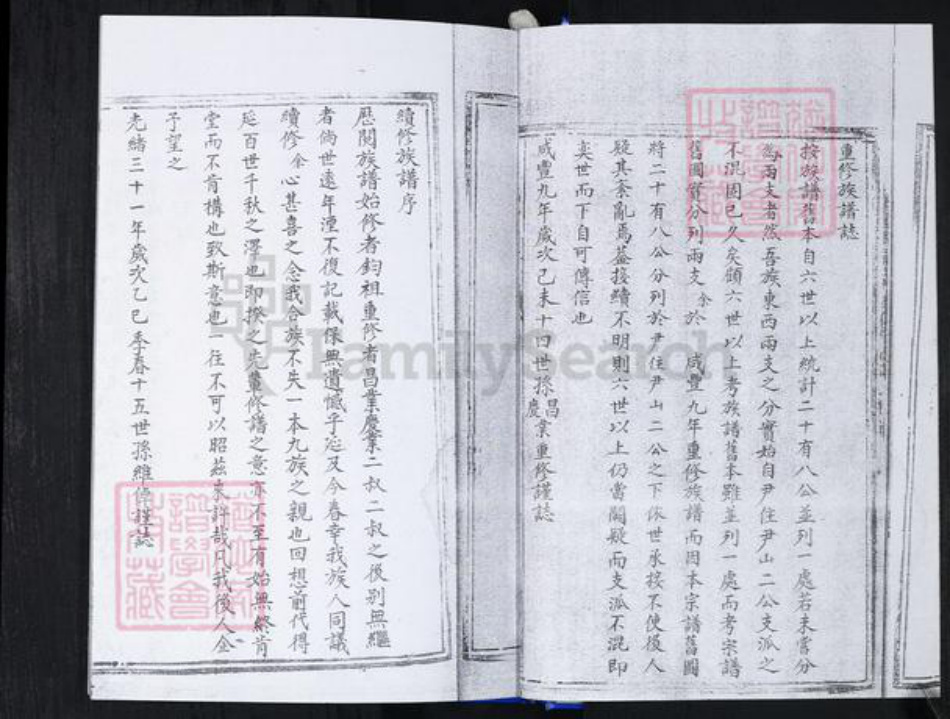 重修族譜誌
按族譜舊本自六世以上統計二十有八公並列一處若未嘗分
為兩支者然吾族東西兩支之分實始自尹住尹山二公支派之
不混固已久矣顧六世以上考族譜舊本雖並列一處而考宗譜
舊圖實分列兩支余於 咸豐九年重修族譜而因本宗譜舊圖
將二十有八公分列於尹住尹山二公之下依世承接不使後人
疑其紊亂焉蓋接續不明則六世以上仍當闕疑而支派不混即
奕世而下自可傳信也
咸豐九年歲次己未十四世孫昌慶業重修謹誌
續修族譜序
歷閱族譜始修者鈞祖重修者昌業慶業二叔二叔之後別無繼
者倘世遠年湮不復記載保無遺憾乎延及今春幸我族人同議
續修余心甚喜之念我合族不失一本九族之親也回想前代得
延百世千秋之澤也即揆之先輩修譜之意亦不至有始無終肯
堂而不肯構也致斯意也一往不可以昭茲來許哉凡我後人全
予望之
光緒三十一年歲次乙巳季春十五世孫維 謹誌
FamilySearch